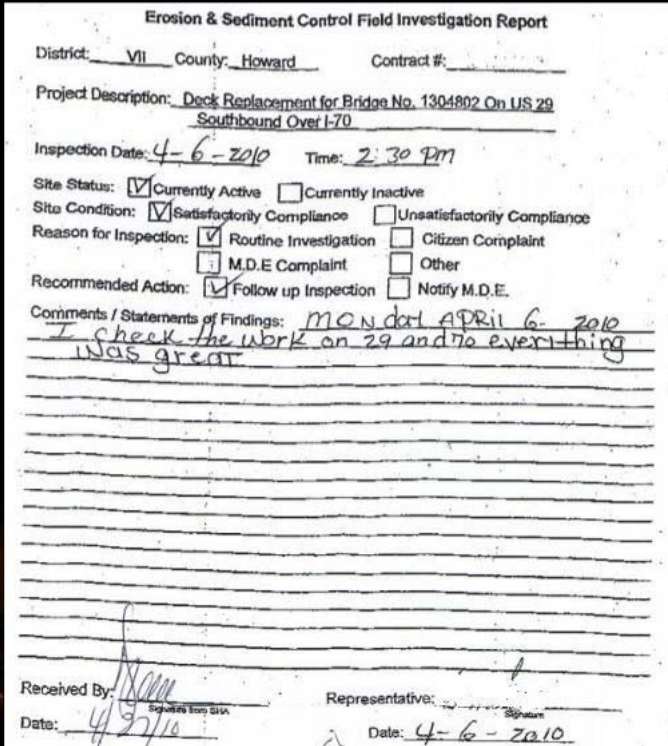 Erosion & Sediment Control Field Investigation Report
District: VII County: Howard Contract #:
Project Description: Deck Replacement for Bridge No. 1304802 On US 29
Southbound Over I-70
Inspection Date: 4-6-2010 Time: 2:30 PM
Site Status: Currently Active Currently Inactive
Site Condition: Satisfactorily Compliance Unsatisfactorily Compliance
Reason for Inspection: Routine Investigation Citizen Complaint
M.D.E Complaint Other
Recommended Action: Follow up Inspection Notify M.D.E.
Comments / Statements of Findings: MONdat APRil 6- 2010
I check the work on 29 and 70 everithing
was great
Received By: Representative:
Signature from SHA Signature
Date: 4/27/10 Date: 4-6-2010